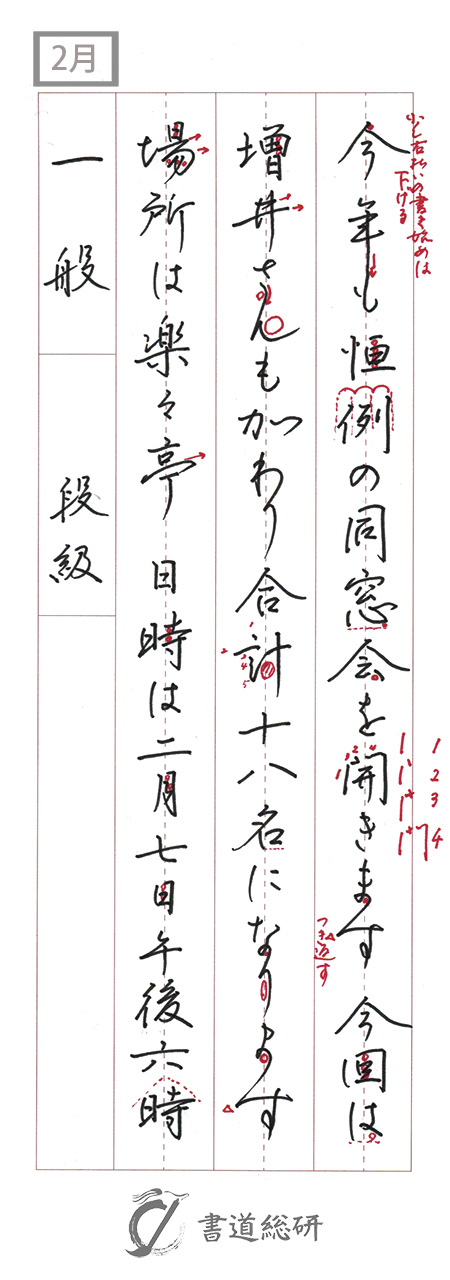 2月
少し右払いの書き始めは
下げる
今年も恒例の同窓会を開きます 今回は
1 2 3 4
つき返す
増井さんも加わり合計十八名になります
場所は楽々亭 日時は二月七日午後六時
一般
段級
書道総研